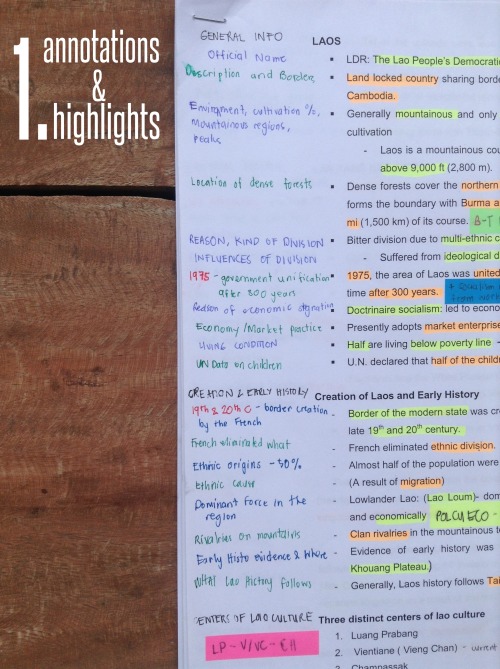 1. annotations
&
highlights
GENERAL INFO
LAOS
Official Name
LDR: The Lao People's Democrati
Description and Border
Land locked country sharing borde
Cambodia.
Environment, cultivation %,
mountainous regions,
peaks
Generally mountainous and only
cultivation
- Laos is a mountainous cou
above 9,000 ft (2,800 m).
Location of dense forests
Dense forests cover the northern
forms the boundary with Burma a
mi (1,500 km) of its course. B-T
REASON, KIND OF DIVISION
Bitter division due to multi-ethnic c
INFLUENCES OF DIVISION
- Suffered from ideological d
1975 - government unification
after 300 years
1975, the area of Laos was united
time after 300 years.
Reason of economic stagnation
Doctrinaire socialism: led to econo
Economy/Market practice
Presently adopts market enterprise
LIVING CONDITION
Half are living below poverty line -
UN Data on children
U.N. declared that half of the childr
CREATION & EARLY HISTORY
Creation of Laos and Early History
19th & 20th C - border creation
by the French
- Border of the modern state was cr
late 19th and 20th century.
French eliminated what
- French eliminated ethnic division.
Ethnic origins - 50%
- Almost half of the population were
Ethnic cause
- (A result of migration)
Dominant force in the
region
- Lowlander Lao: (Lao Loum)- dom
and economically POLCUECO -
Rivalries on mountains
- Clan rivalries in the mountainous t
Early Histo evidence & where
- Evidence of early history was
Khouang Plateau.)
What Lao history follows
- Generally, Laos history follows Tai
CENTERS OF LAO CULTURE
Three distinct centers of lao culture
LP - V/VC - CH
1. Luang Prabang
2. Vientiane ( Vieng Chan) - current
3. Champassak